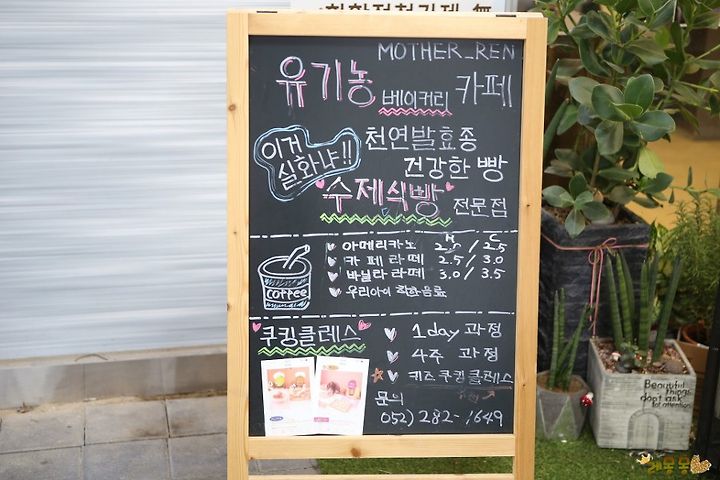 MOTHER_REN
유기농 베이커리 카페
이거 실화냐!!
천연발효종
건강한 빵
수제식빵 전문점
H C
아메리카노 2.0 / 2.5
카페라떼 2.5 / 3.0
바닐라라떼 3.0 / 3.5
우리아이 착한음료
coffee
쿠킹클레스
1day 과정
4주 과정
키즈쿠킹클레스
문의
052) 282-1649
Beautiful things don't ask for attention
계몽몽